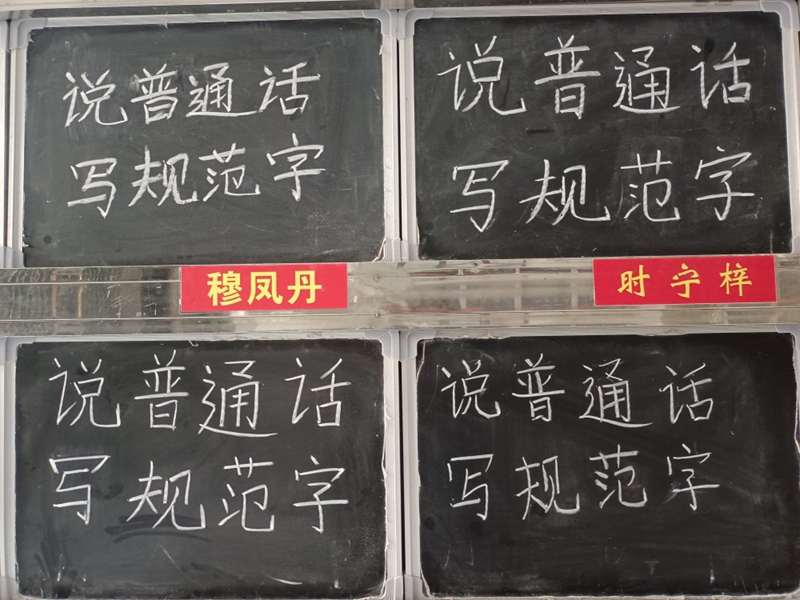 说普通话
写规范字
说普通话
写规范字
穆凤丹
时宁梓
说普通话
写规范字
说普通话
写规范字